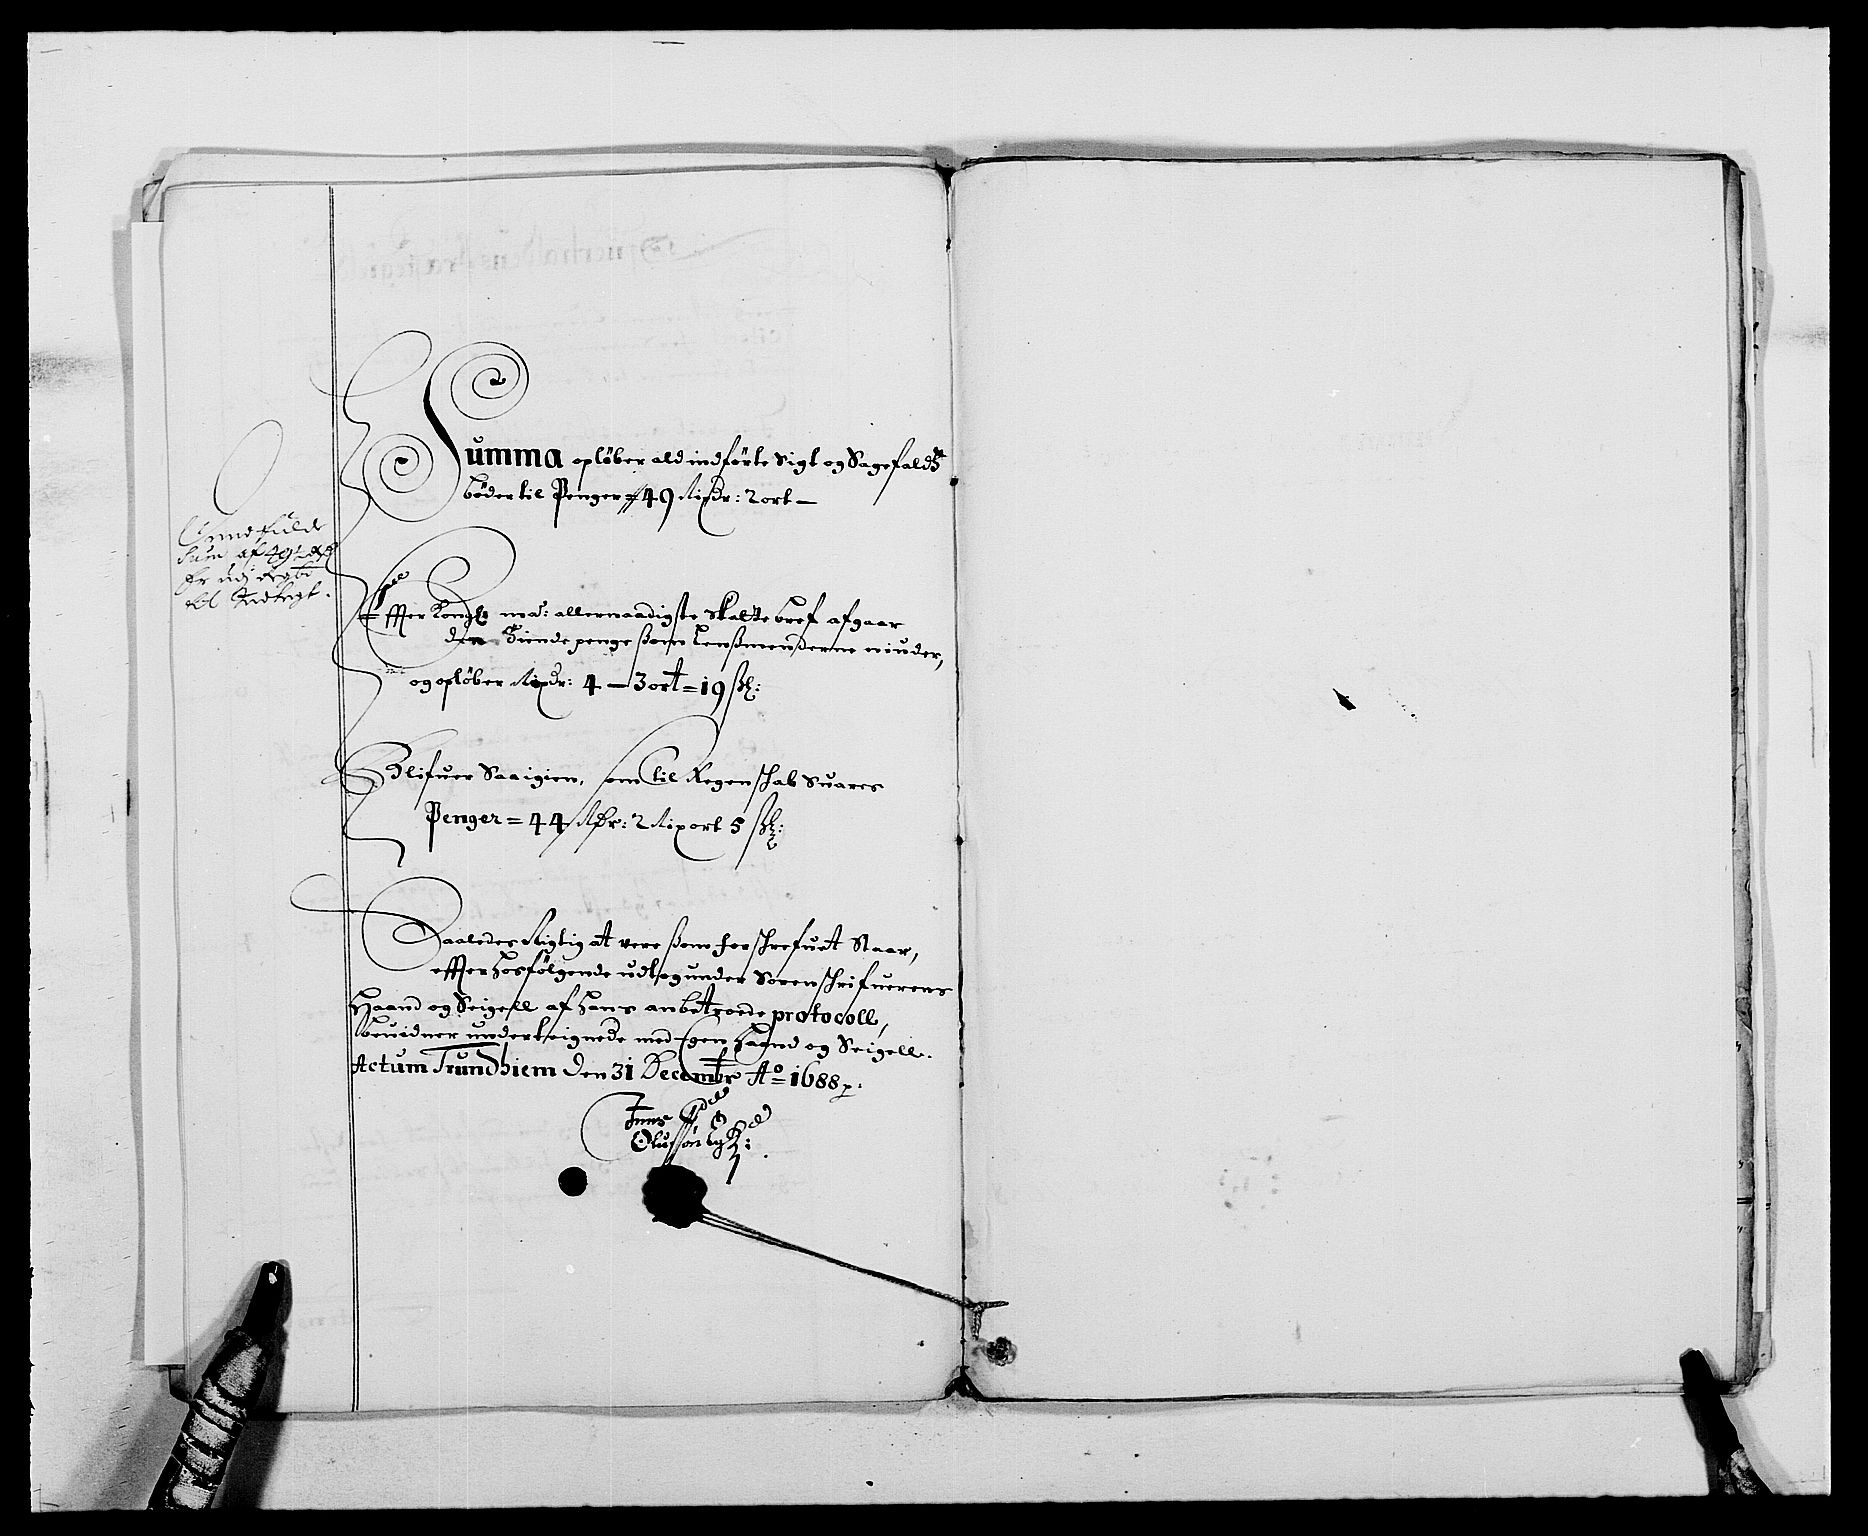 Summa opløber ald indførte Sigt og Sagefalds
bøder til Penger 49 Rixdr: 2 ort
fuld
Sum af 49½
Indtegt.
Effter Kongl: ma: allernaadigste Skatte bref afgaar
den Tiende penge ßom Lenßmenderne niuder,
og opløber Rixdr: 4 — 3 ort = 19 ßl:
Blifuer Saaigien, som til Regenschab Suares
Penger = 44 Rdr: 2 Rixort 5 ßl:
Saaledes Rigtig at vere ßom forschrefuet Staar,
effter hosfølgende udtog under Sorenschrifuerens
Haand og Seigell af hans anbetroede protocoll,
beuidner underteignede med Egen Haand og Seigell.
Actum Trundhiem den 31 Decembr Ao 1688
Jens
Olufsøn